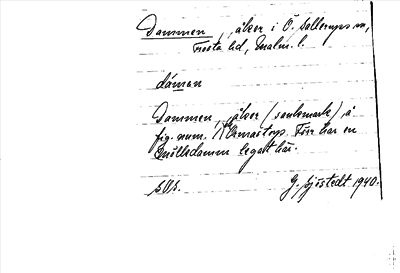 Dammen, åker i Ö. Sallerups sn,
Frosta hd, Malm. l.
dámən
Dammen, åker (sankmark) å
fig. num. 1 Förr har en
Mölledamm legat här.
s. Os.
G. Sjöstedt 1940.